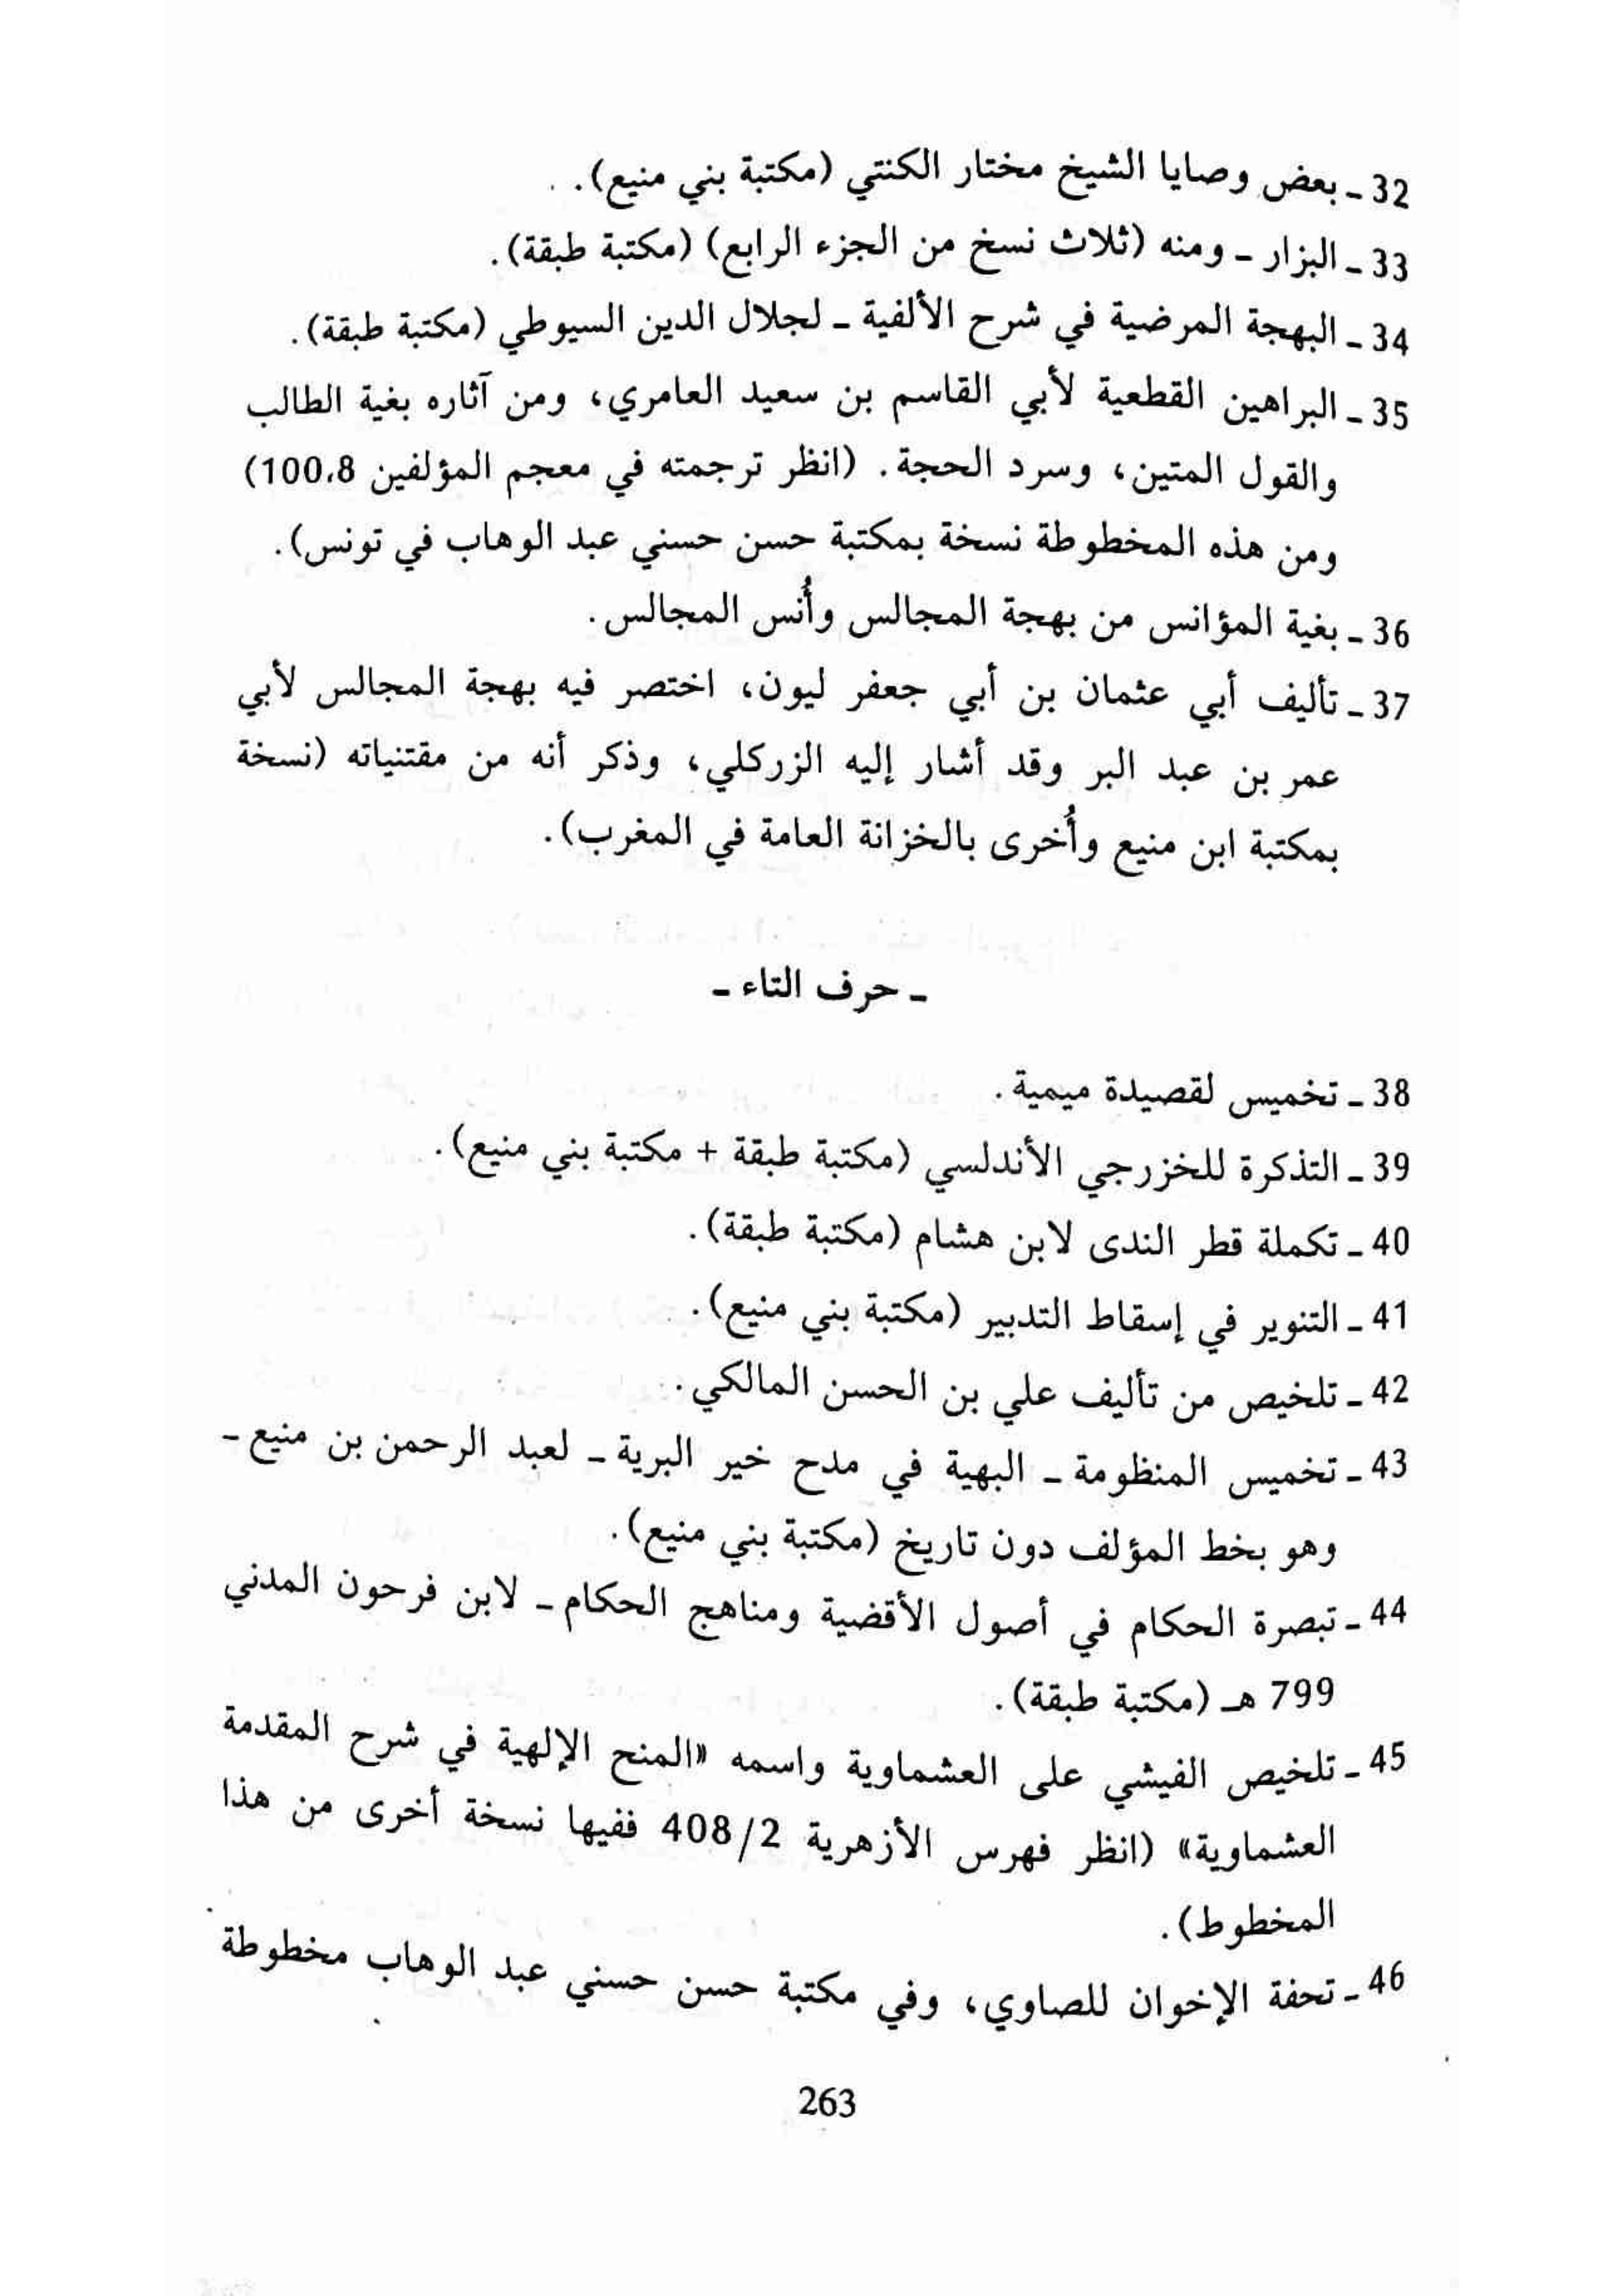 32 ـ بعض وصايا الشيخ مختار الكنتي (مكتبة بني منيع).
33 ـ البزار ـ ومنه (ثلاث نسخ من الجزء الرابع) (مكتبة طبقة).
34 ـ البهجة المرضية في شرح الألفية ـ لجلال الدين السيوطي (مكتبة طبقة).
35 ـ البراهين القطعية لأبي القاسم بن سعيد العامري، ومن آثاره بغية الطالب
والقول المتين، وسرد الحجة. (انظر ترجمته في معجم المؤلفين 100،8)
ومن هذه المخطوطة نسخة بمكتبة حسن حسني عبد الوهاب في تونس).
36 ـ بغية المؤانس من بهجة المجالس وأُنس المجالس.
37 ـ تأليف أبي عثمان بن أبي جعفر ليون، اختصر فيه بهجة المجالس لأبي
عمر بن عبد البر وقد أشار إليه الزركلي، وذكر أنه من مقتنياته (نسخة
بمكتبة ابن منيع وأُخرى بالخزانة العامة في المغرب).
ـ حرف التاء ـ
38 ـ تخميس لقصيدة ميمية.
39 ـ التذكرة للخزرجي الأندلسي (مكتبة طبقة + مكتبة بني منيع).
40 ـ تكملة قطر الندى لابن هشام (مكتبة طبقة).
41 ـ التنوير في إسقاط التدبير (مكتبة بني منيع).
42 ـ تلخيص من تأليف علي بن الحسن المالكي.
43 ـ تخميس المنظومة ـ البهية في مدح خير البرية ـ لعبد الرحمن بن منيع ـ
وهو بخط المؤلف دون تاريخ (مكتبة بني منيع).
44 ـ تبصرة الحكام في أصول الأقضية ومناهج الحكام ـ لابن فرحون المدني
799 هـ (مكتبة طبقة).
45 ـ تلخيص الفيشي على العشماوية واسمه «المنح الإلهية في شرح المقدمة
العشماوية» (انظر فهرس الأزهرية 408/2 ففيها نسخة أخرى من هذا
المخطوط).
46 ـ تحفة الإخوان للصاوي، وفي مكتبة حسن حسني عبد الوهاب مخطوطة
263